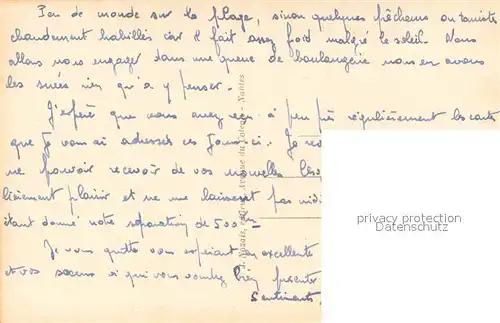 Peu de monde sur la plage, sinon quelques pêcheurs ou touristes
chaudement habillés car il fait assez froid malgré le soleil. Nous
allons nous engager dans une queue de boulangerie nous en avons
les suées rien qu'à y penser.
J'espère que vous avez reçu à peu près régulièrement les cartes
que je vous ai adressées ces jours-ci. Je
ne pouvoir recevoir de vos nouvelles
plaisir et ne me laissent pas
étant donné notre séparation de 500
Je vous quitte vous espérant en excellente
et vos soeurs à qui vous voudrez bien présenter
Sentiments,
Nozais, éditeur, Avenue du Coteau - Nantes
privacy protection
Datenschutz